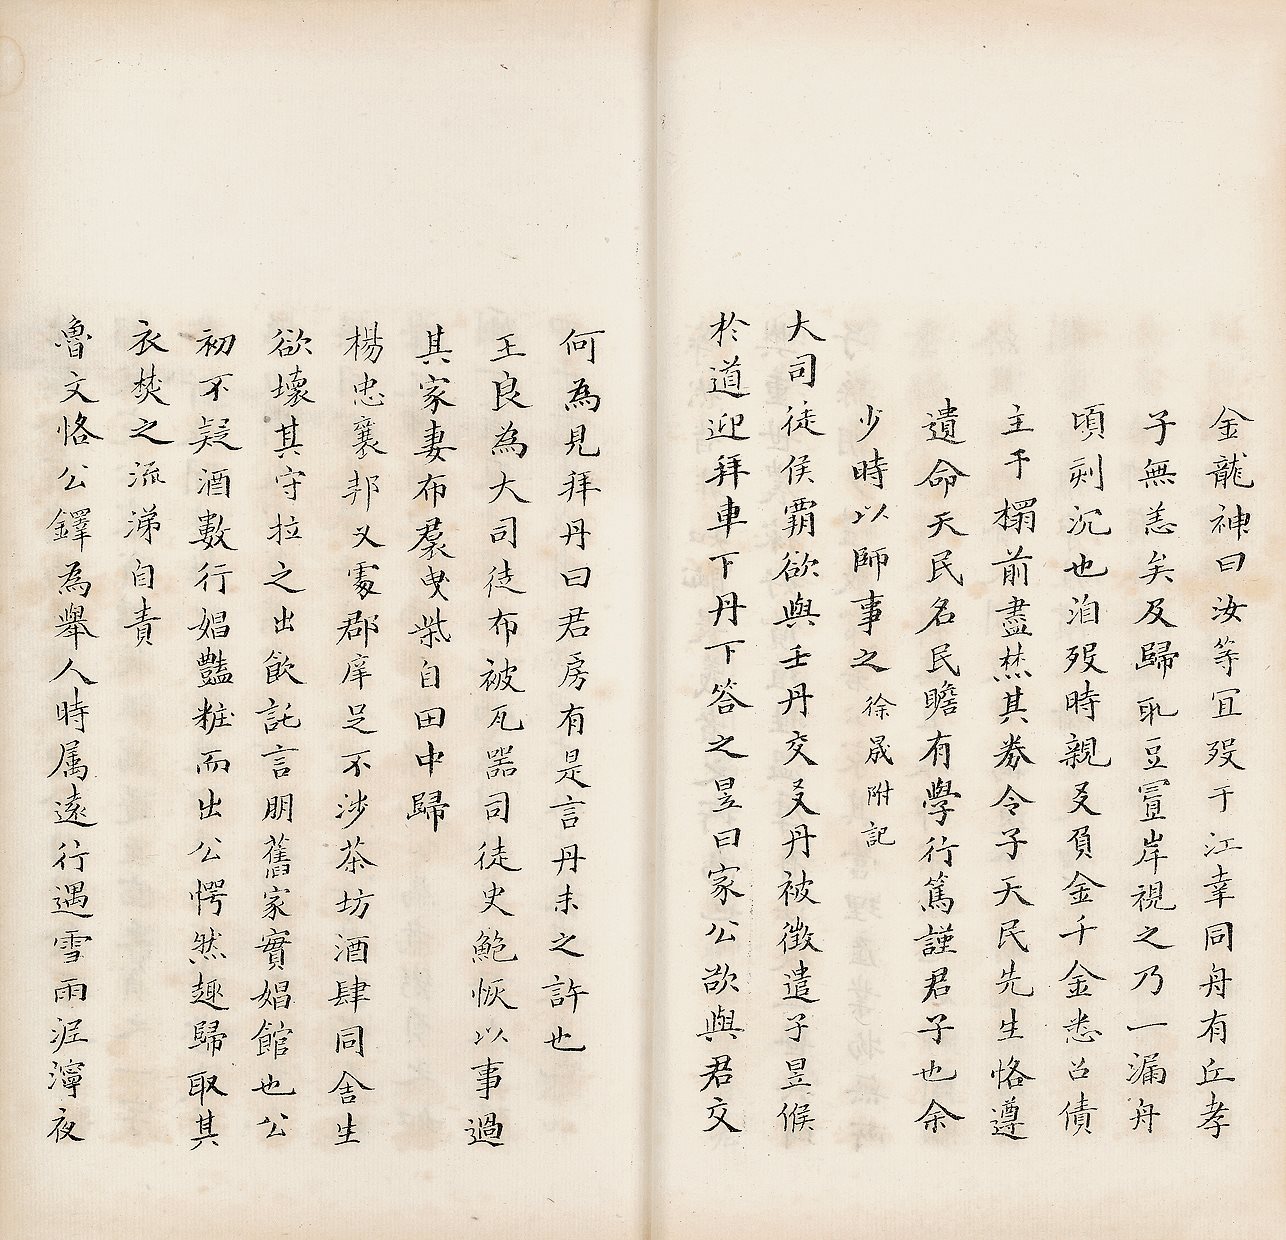 金龍神曰汝等宜歿于江幸同舟有丘孝
子無恙矣及歸耴豆寘岸視之乃一漏舟
頃刻沉也洎歿時親友負金千金悉召債
主于榻前盡焚其券令子天民先生恪遵
遺命天民名民瞻有學行篤謹君子也余
少時以師事之徐晟附記
大司徒侯霸欲與王丹交友丹被徵遣子昱候
於道迎拜車下丹下答之昱曰家公欲與君交
何為見拜丹曰君房有是言丹未之許也
王良為大司徒布被瓦噐司徒史鮑恢以事過
其家妻布裠曳柴自田中歸
楊忠襄邦乂䖏郡庠足不涉茶坊酒肆同舍生
欲壞其守拉之出飲託言朋舊家實娼館也公
初不疑酒數行娼豔粧而出公愕然趣歸取其
衣焚之流涕自責
魯文恪公鐸為舉人時属遠行遇雪雨泥濘夜